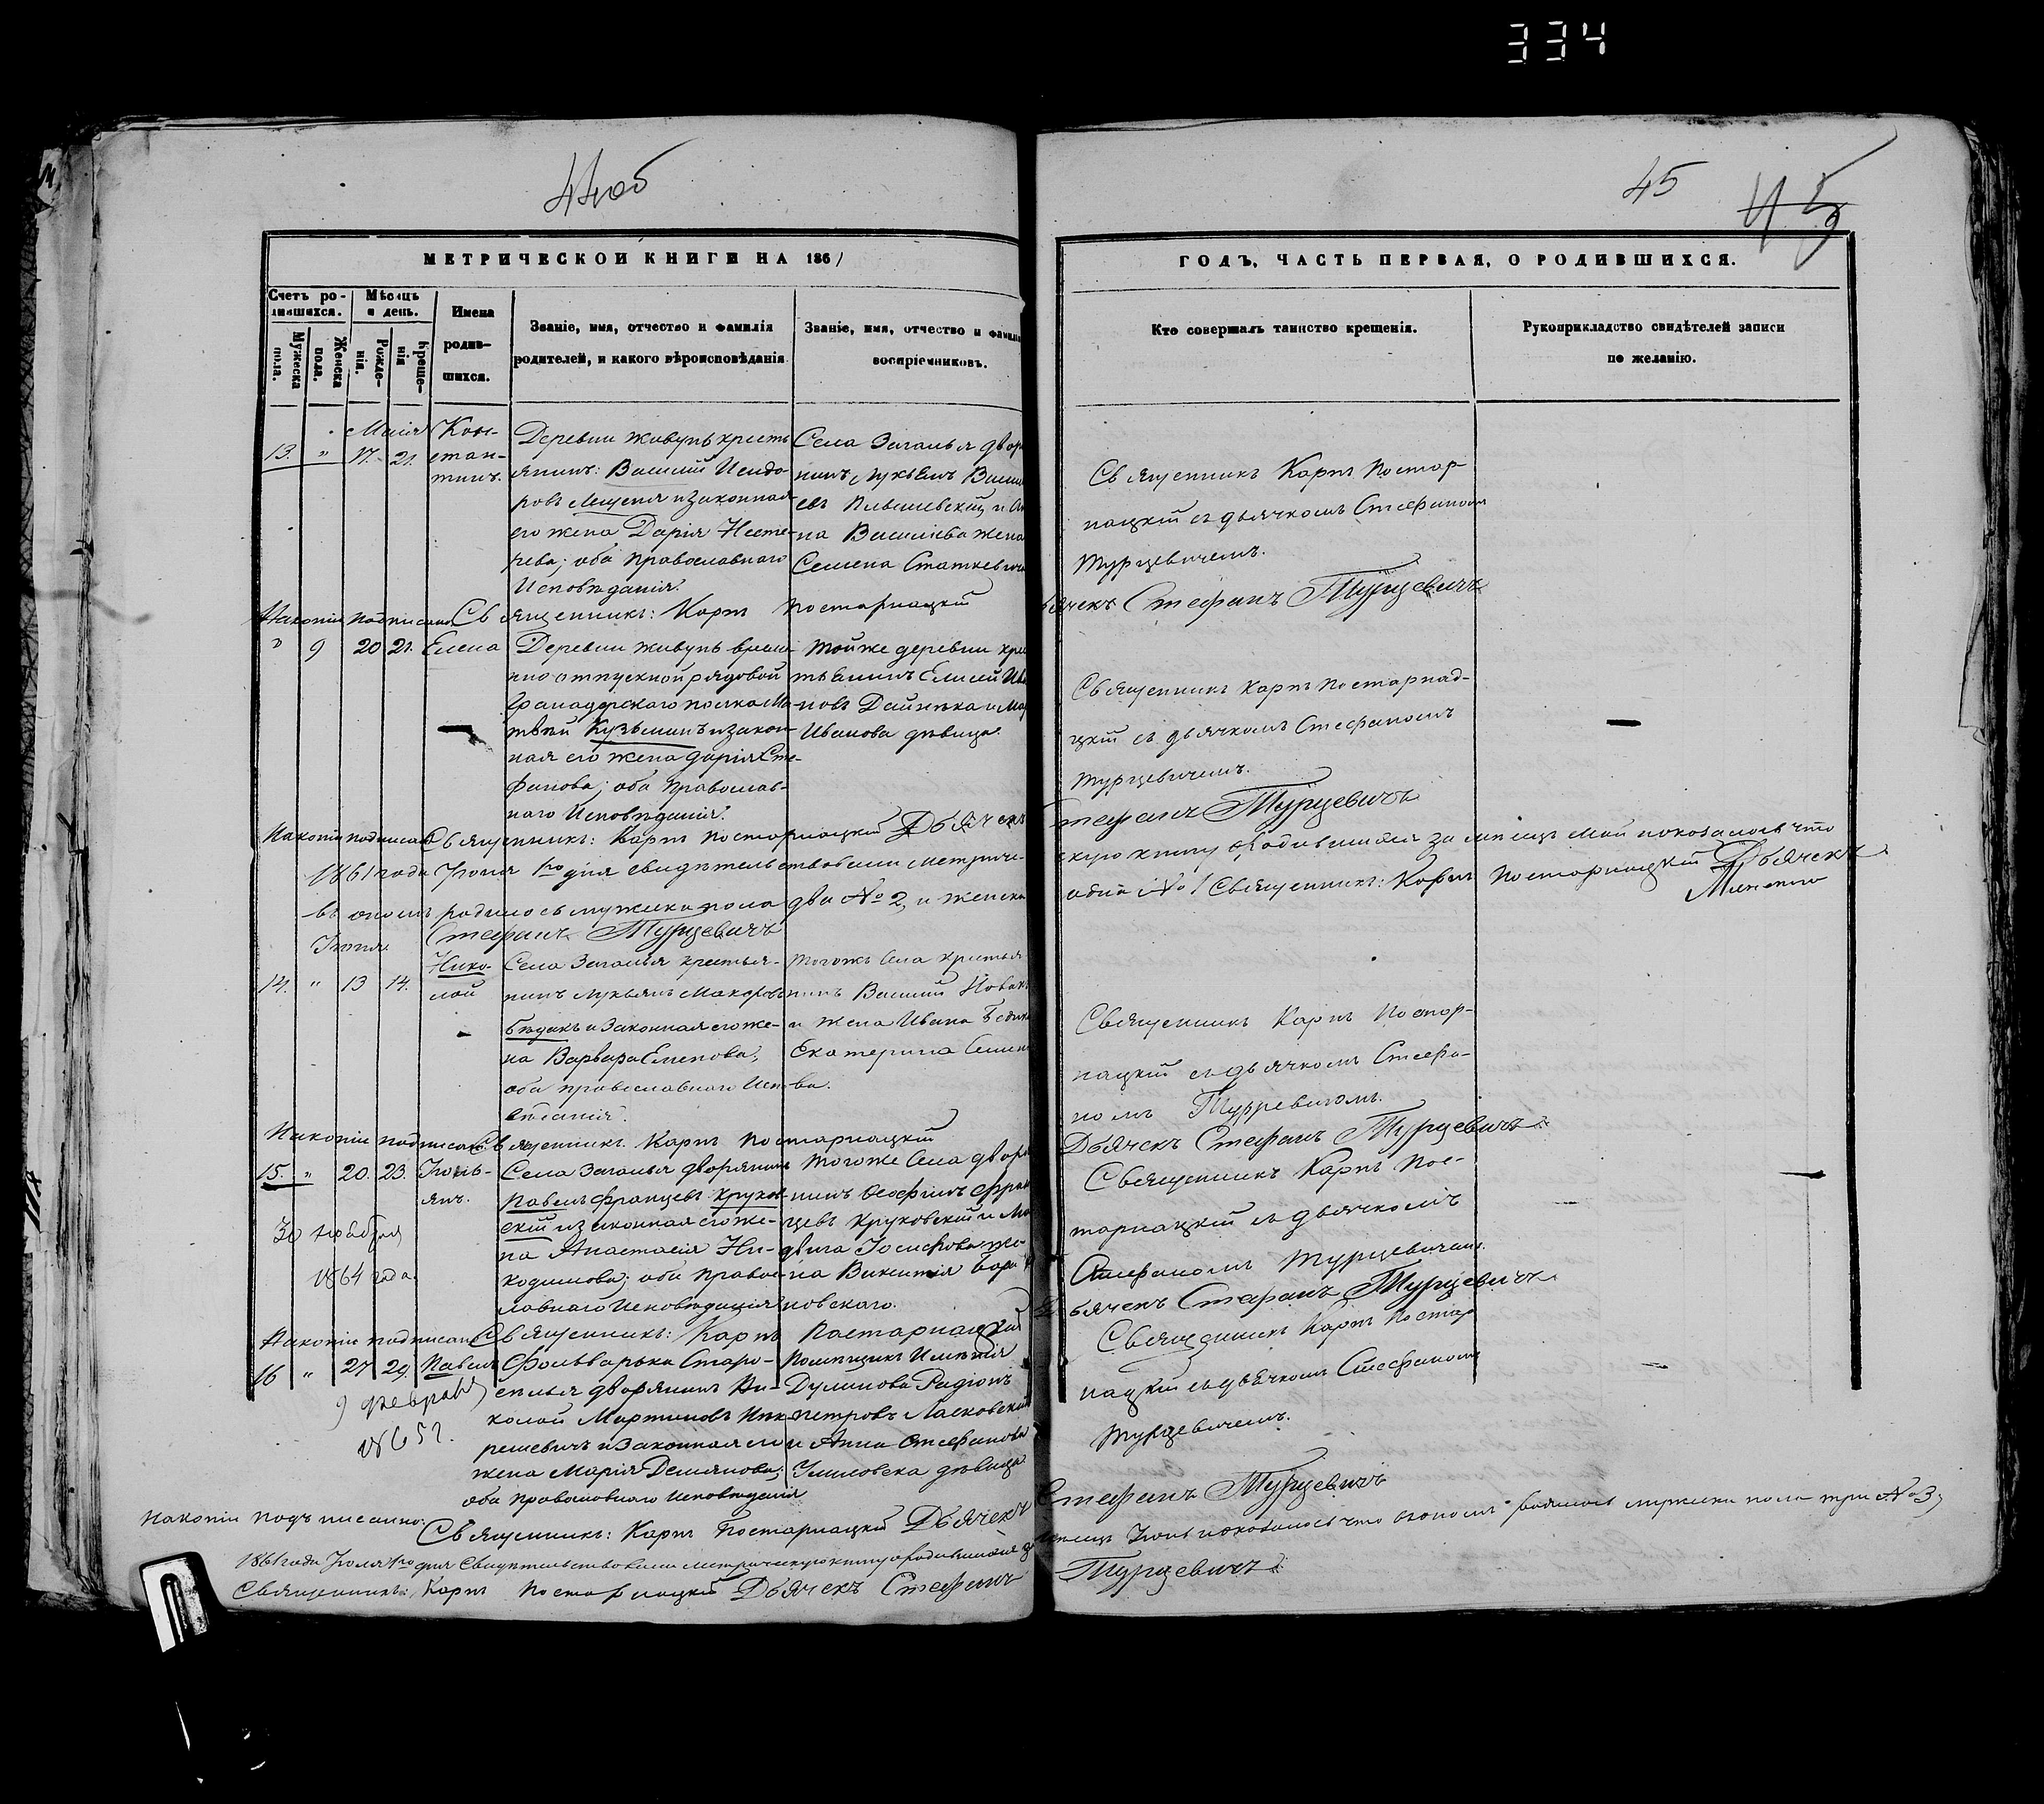 334
44об
45
45
МЕТРИЧЕСКОЙ КНИГИ НА 1861
ГОДЪ, ЧАСТЬ ПЕРВАЯ, О РОДИВШИХСЯ.
Счетъ ро-
дившихся.
Мужеска
пола.
Женска
пола.
Мѣсяцъ
и день.
Рожде-
нія.
Креще-
нія
Имена
родив-
шихся.
Званіе, имя, отчество и фамилія
родителей, и какого вѣроисповѣданія
Званіе, имя, отчество и фамилі
воспріемниковъ.
Кто совершалъ таинство крещенія.
Рукоприкладство свидѣтелей записи
по желанію.
Маія
13. " 17. 21.
Кон-
стан-
тинъ.
Деревни Живунь кресть
янинъ: Василій Исидо-
ровъ и законная
его жена Дарія Несте-
рева; оба Православнаго
Исповѣданія.
Села Загалья двор
нинъ Лукьянъ Васи
евъ и Ан
на Васильева жена
Семена Статкевича
Священникъ Карпъ Постар-
нацкій съ дьячкомъ Стефаномъ
Турцевичемъ.
На копіи подписано Священникъ: Карпъ Постарнацкій
ьячекъ Стефанъ Турцевичъ
" 9 20 21. Елена
Деревни Живунь време
нно отпускной рядовой
полка Ма-
твѣй Кузьминъ и закон-
ная его жена Дарія Сте-
фанова; оба Православ-
наго Исповѣданія.
Той же деревни кре
тьянинъ Елисей Ива
новъ Дайнека и Мар
Иванова дѣвица.
Священникъ Карпъ Постарнад-
цкій съ дьячкомъ Стефаномъ
Турцевичемъ.
На копіи подписано Священникъ: Карпъ Постарнацкій Дьячекъ
Стефанъ Турцевичъ
1861 года Іюня 1го дня свидѣтельствовали метриче-
скую книгу о родившихся за мѣсяцъ Май показалось что
въ ономъ родилось мужеска пола два № 2, и женска
одна № 1 Священникъ: Карпъ Постарнацкій Дьячекъ
Стефанъ Турцевичъ
Іюня
14. " 13 14.
Нико-
лай
Села Загалья крестья-
нинъ Лукьянъ Макаровъ
и законная его же-
на Варвара Емепова;
оба православнаго Исп
вѣданія.
Тогожъ Села крестья
нинъ Василій Новак
и жена Ивана
Екатерина Семен
ва.
Священникъ Карпъ Постар-
нацкій съ дьячкомъ Стефа-
номъ Турцевичомъ.
На копіи подписано Священникъ. Карпъ Постарнацкій
Дьячекъ Стефанъ Турцевичъ
15. " 20. 23.
Іюль-
янъ.
30 ноября
1864 года
Села Загалья дворянинъ
Павелъ Францевъ Круков-
скій и законная его же-
на Анастасія Ни-
кодимова; оба Право-
славнаго Исповѣданія
Тогоже Села дворя
нинъ Фран
цевъ Круковскій и Ма
Іосифова же-
на Викентія
новскаго.
Священникъ Карпъ Пос-
тарнацкій съ дьячкомъ
Стефаномъ Турцевичемъ.
На копіи подписано Священникъ: Карпъ Постарнацкій
Дьячекъ Стефанъ Турцевичъ
16 " 27 29. Павелъ
9 февраля
1865 г.
Фольварька Старо-
селья дворянинъ Ни-
колай Мартиновъ
и законная его
жена Марія Демянова;
оба православнаго Исповѣданія
Помѣщикъ Имѣнія
Петровъ Ласковскій
и Анна Стефанова
дѣвица
Священникъ Карпъ Постар
нацкій съ дьячкомъ Стефаномъ
Турцевичемъ.
На копіи подъписанно:
Священникъ: Карпъ Постарнацкій Дьячекъ
Стефанъ Турцевичъ
1861 года Іюля 1го дня Свидѣтельствовали метрическую книгу о родившихся за
мѣсяцъ Іюнь показалось что въ ономъ родилось мужеска пола три № 3,
Священникъ: Карпъ Постарнацкій Дьячекъ Стефанъ
Турцевичъ